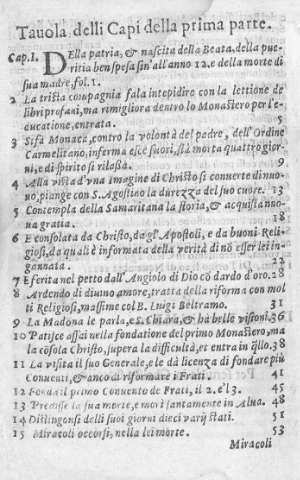 Tauola delli Capi della prima parte.
Cap.1. DElla patria, & nascita della Beata, della pue-
ritia ben spesa sin'all'anno 12. e della morte di
sua madre, fol. 1.
2 La trista compagnia fala intepidire con la lettione de
libri profani, ma rimigliora dentro lo Monastero per l'e-
ducatione, entrata. 5
3 Si fà Monaca, contro la volontà del padre, dell'Ordine
Carmelitano, inferma esce fuori, stà morta quattro gior-
ni, e di spirito si rilassa. 9
4 Alla vista d'vna Imagine di Christo si conuerte di nuo-
uo, piange con S. Agostino la durezza del suo cuore. 13
5 Contempla della Samaritana la storia, & acquista no-
ua gratia. 18
6 E consolata da Christo, da gl'Apostoli, e da buoni Reli-
giosi, da quali è informata della verità di nō esser lei in-
gannata. 23
7 E ferita nel petto dall'Angiolo di Dio cō dardo d'oro. 28
8 Ardendo di diuino amore, tratta della riforma con mol
ti Religiosi, massime col B. Luigi Beltramo. 31
9 La Madona le parla, e S. Chiara, & ha belle visioni. 36
10 Patisce assai nella fondatione del primo Monastero, ma
la cōsola Christo, supera la difficultà, et entra in esso. 38
11 La visita il suo Generale, e le dà licenza di fondare più
Conuenti, & anco di riformare i Frati. 41
12 Fonda il primo Conuento de Frati, il 2. e'l 3. 45
13 Predisse la sua morte, e morì santamente in Alua. 48
14 Distingonsi delli suoi giorni dieci varij stati. 51
15 Miracoli occorsi, nella lei morte. 53
Miracoli